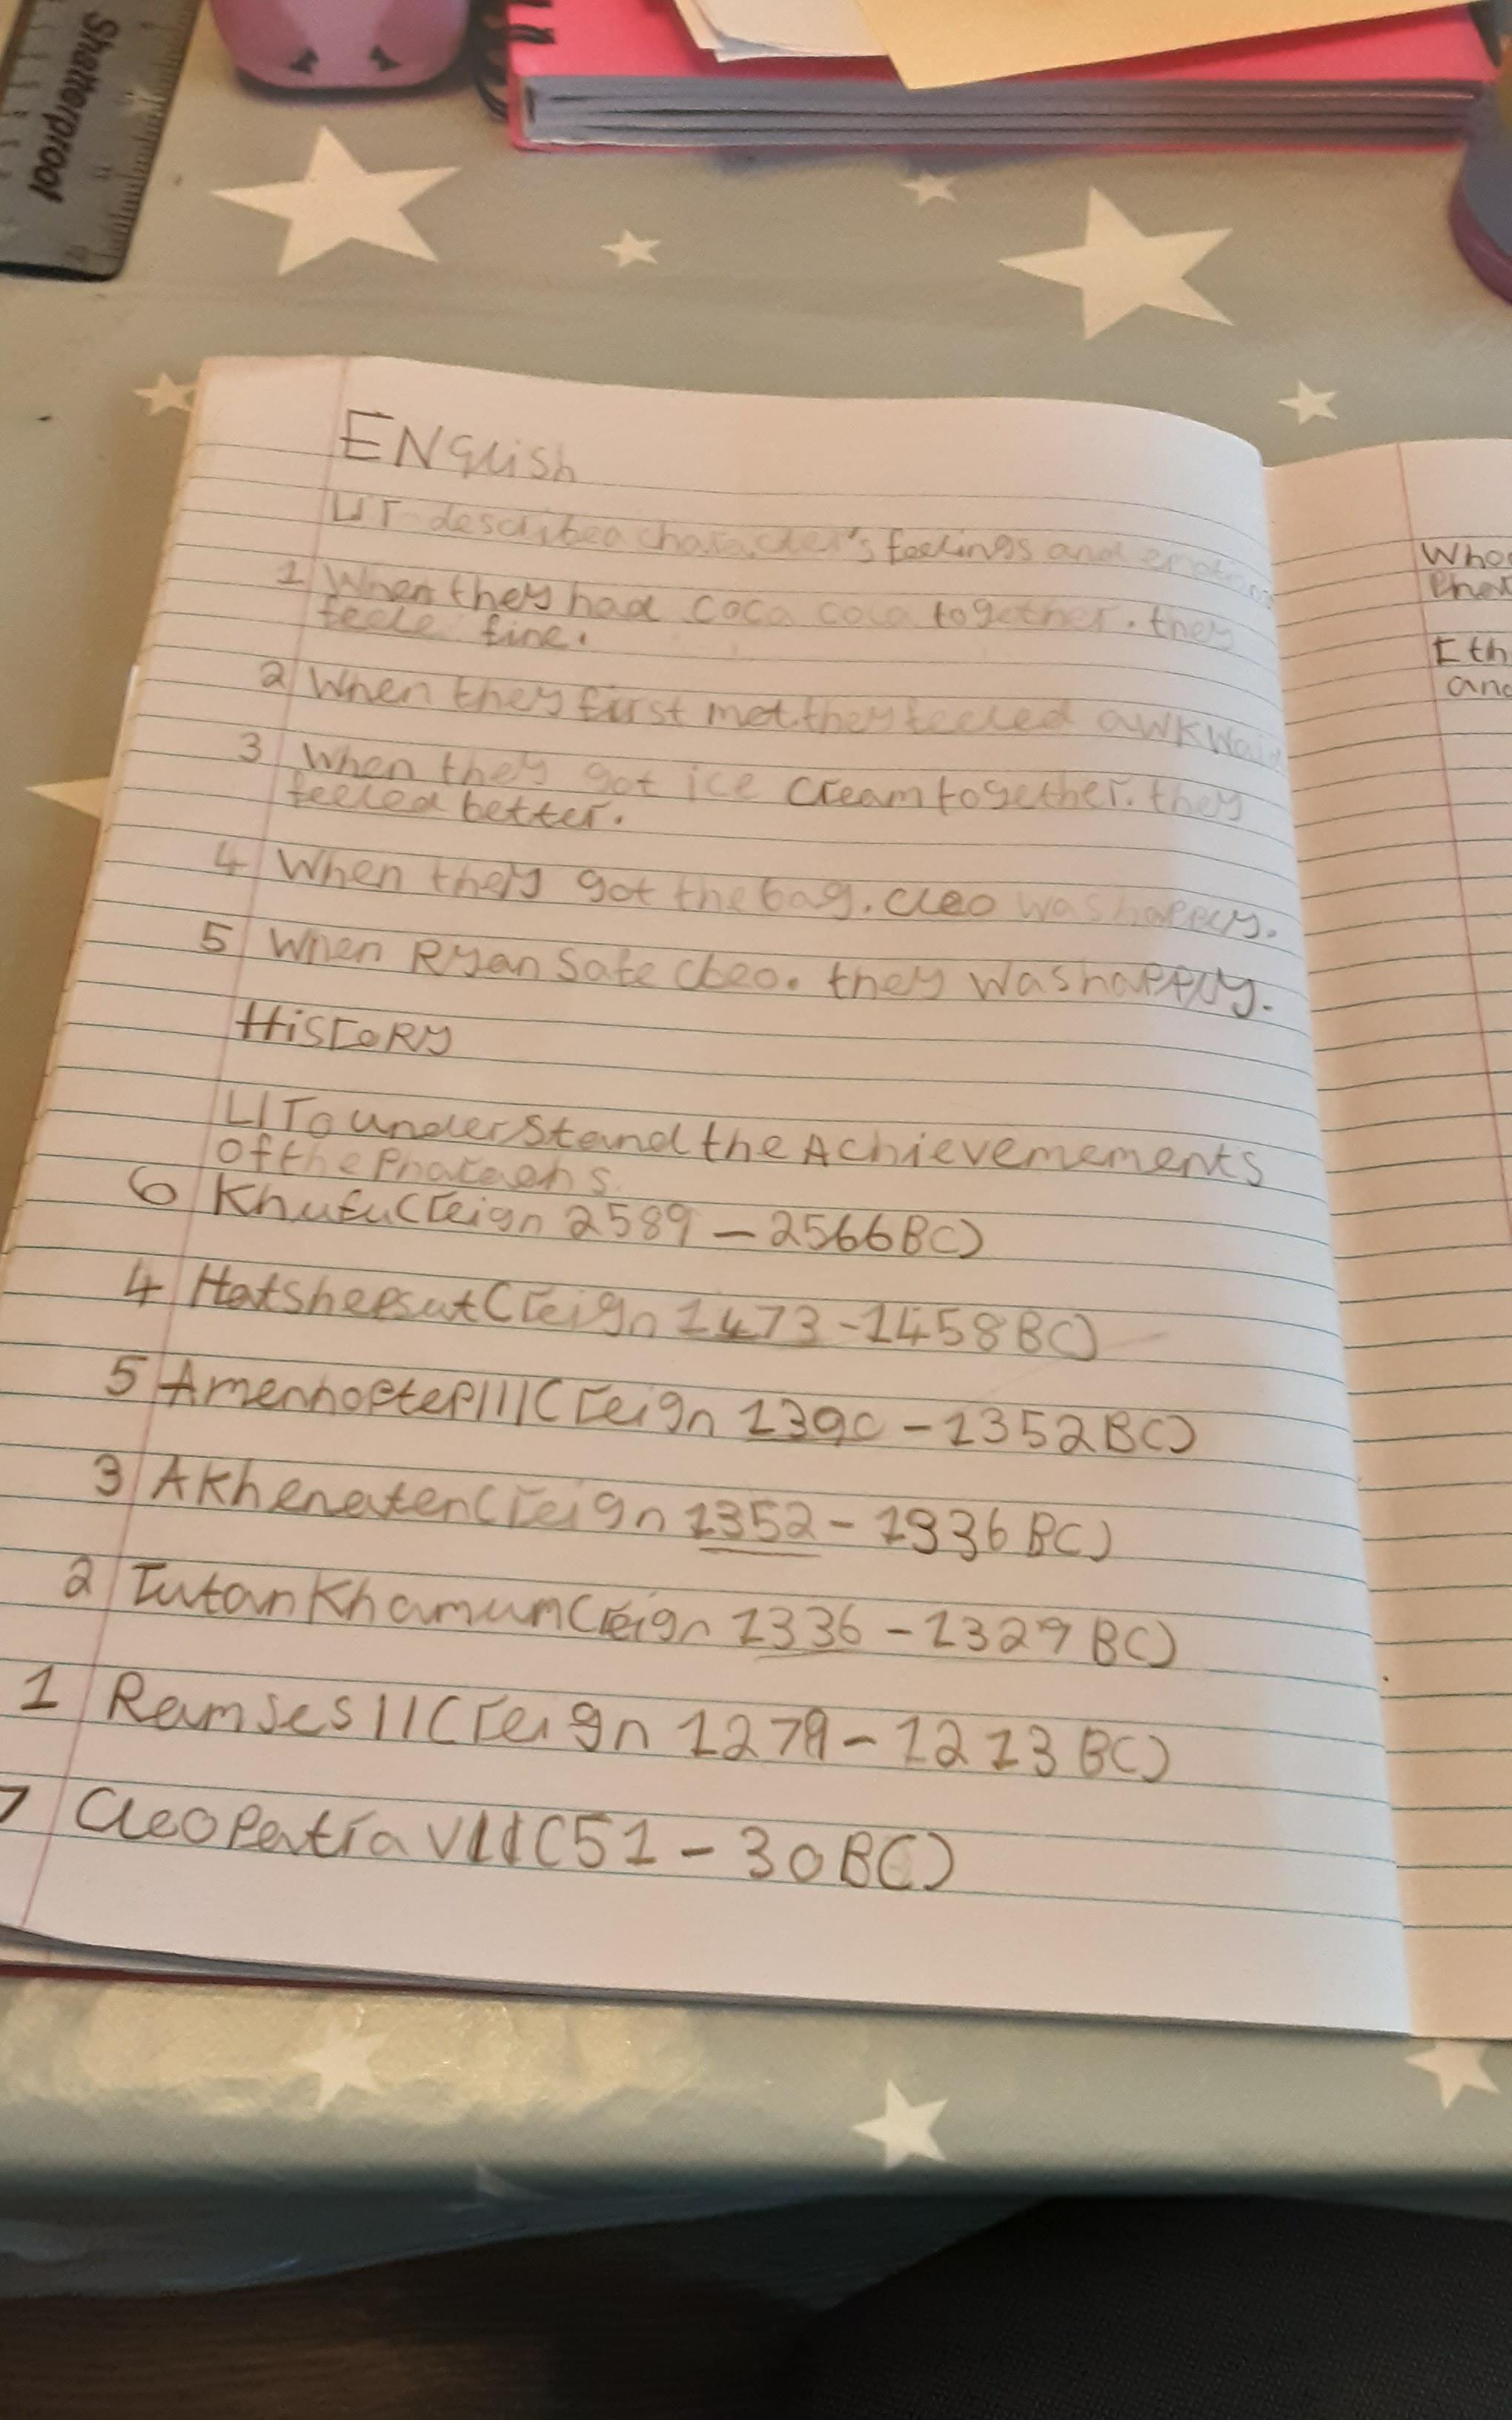 Shatterproof
ENglish
LIT describe a character's feelings and emotions
1 When they had coca cola together. they
feele fine.
2 When they first met. they feeled awkward
3 When they got ice cream together. they
feeled better.
4 When they got the bag. cleo was happy.
5 When Ryan Safe Cleo. they was happy.
HiSToRy
LI To understand the Achievemements
Of the Pharaohs.
6 Khufu (reign 2589 - 2566 BC)
4 Hatshepsut (reign 1473 - 1458 BC)
5 Amenhoptep III (reign 1390 - 1352 BC)
3 Akhenaten (reign 1352 - 1336 BC)
2 Tutankhamum (reign 1336 - 1327 BC)
1 Ramses II (reign 1279 - 1213 BC)
7 Cleopatra VII (51 - 30 BC)
I th
and